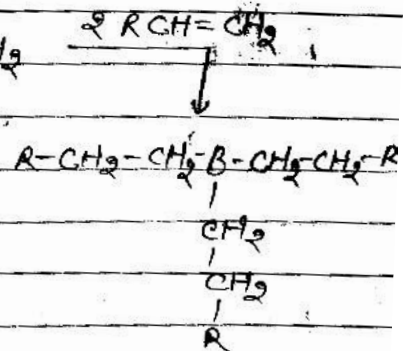 2 RCH=CH2
H2
R-CH2-CH2-B-CH2-CH2-R
|
CH2
|
CH2
|
R